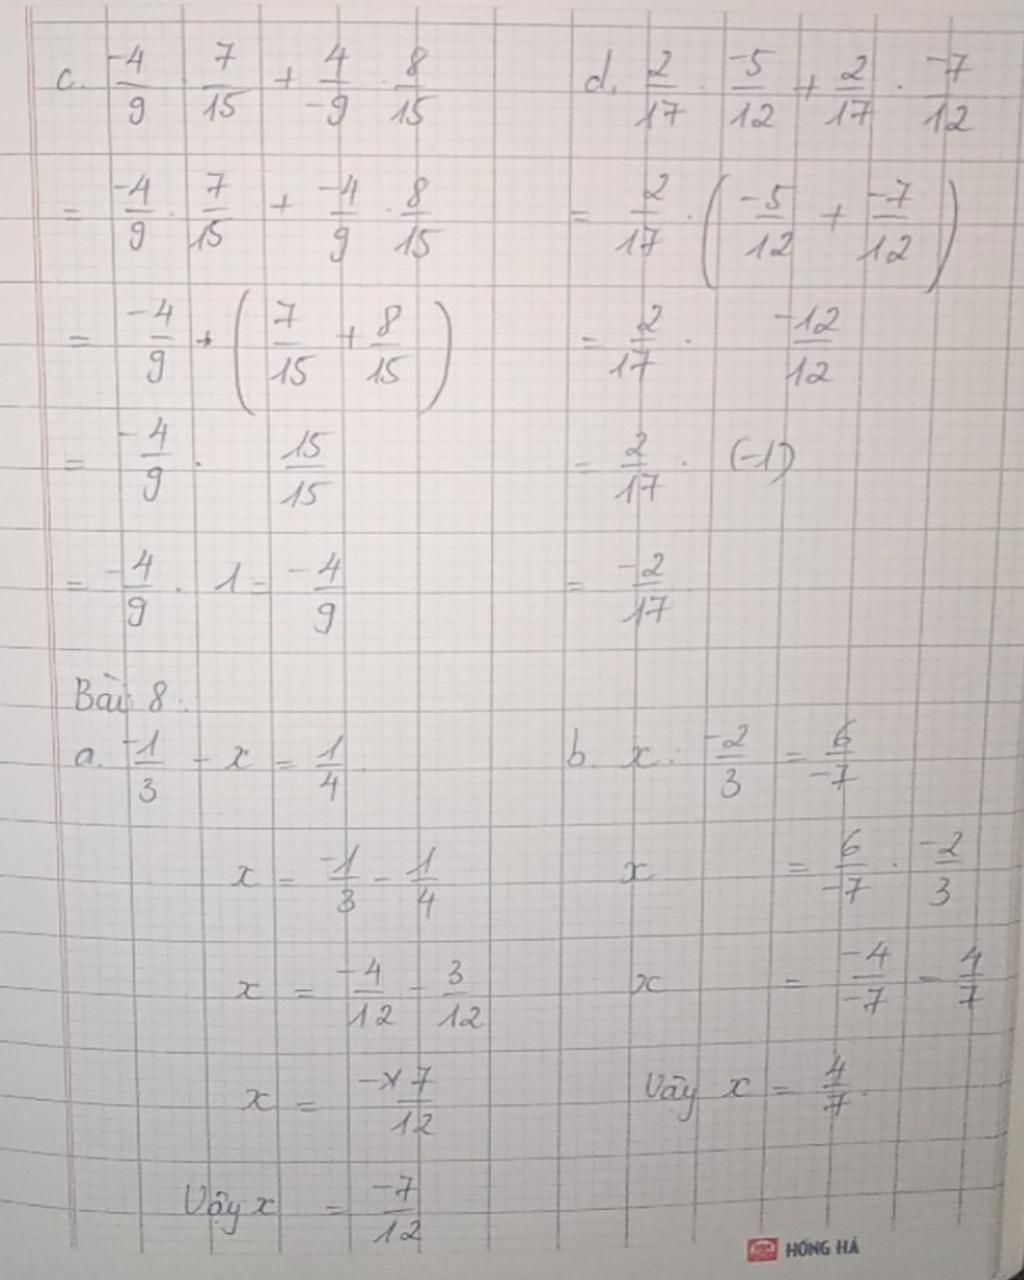 c. -4/9 . 7/15 + 4/-9 . 8/15
= -4/9 . 7/15 + -4/9 . 8/15
= -4/9 + (7/15 + 8/15)
= -4/9 . 15/15
= -4/9 . 1 = -4/9
d. 2/17 . -5/12 + 2/17 . -7/12
= 2/17 . (-5/12 + -7/12)
= 2/17 . -12/12
= 2/17 . (-1)
= -2/17
Bài 8.
a. -1/3 - x = 1/4
x = -1/3 - 1/4
x = -4/12 - 3/12
x = -7/12
Vậy x = -7/12
b. x : -2/3 = 6/-7
x = 6/-7 . -2/3
x = -4/-7 = 4/7
Vậy x = 4/7.
HONG HA